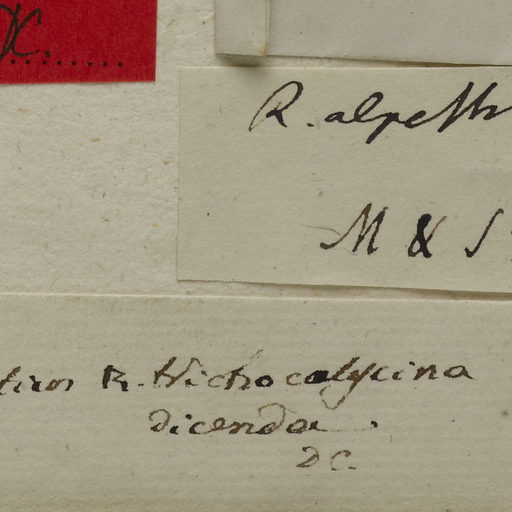 R. alpestr
M & S
R. trichocalycina
dicenda.
DC.